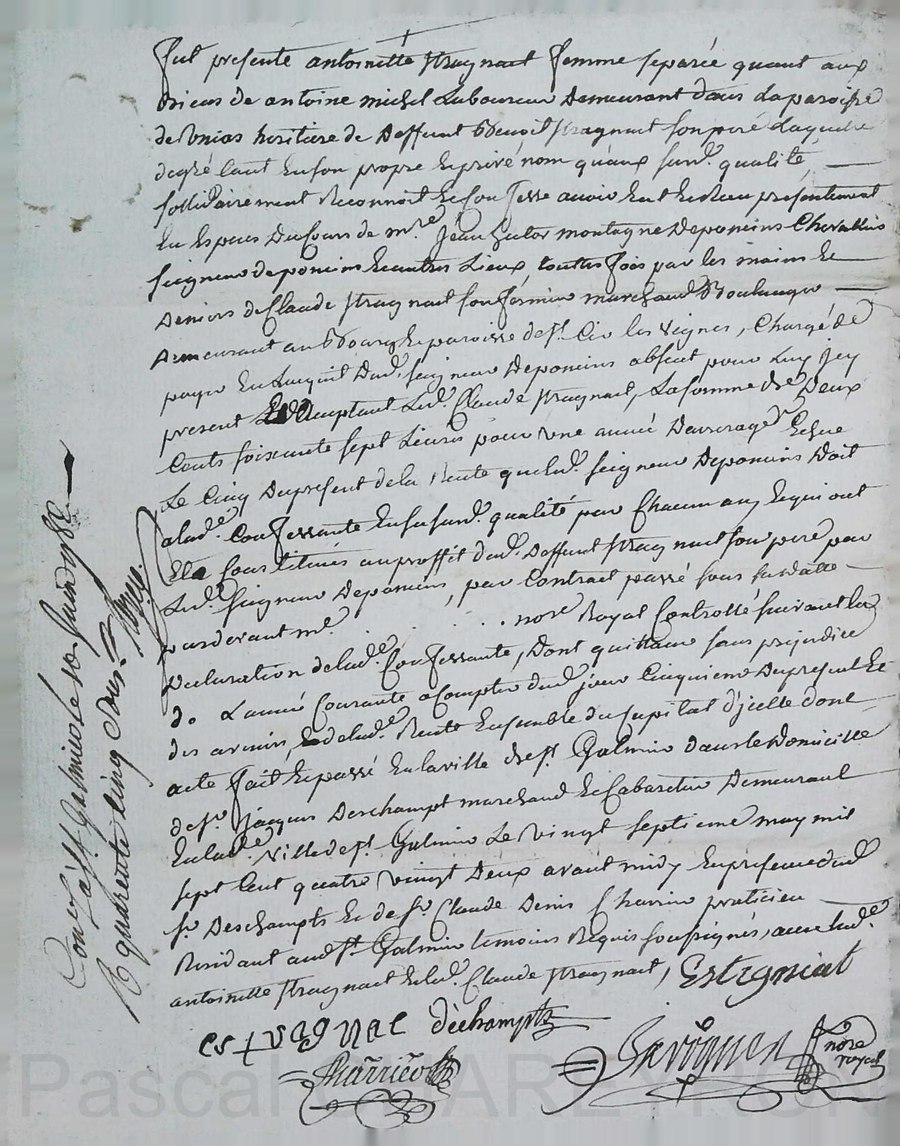 fut presente antoinette Stragnat femme separée quant aux
Biens de antoine michel Laboureur Demeurant dans La paroisse
de Unias heritiere de Deffunt Benoit Stragnat son pere Laquelle
degré tant En son propre Et privé nom qu'aux Susd. qualité
sollidairement Reconnoit Et Confesse avoir Eut Et Receu presentement
En Especes Du Cours de mre Jean hector montagne De poncins Chevallier
Seigneur de poncins Et autres Lieux, touttes fois par les mains Et
Deniers de Claude Stragnat son fermier marchand Boulanger
Demeurant au Bourg Et paroisse de St. Cir les vignes, Chargé de
payer En L'acquit Dud. Seigneur De poncins absent pour Luy Icy
present Et acceptant Led. Claude Stragnat, La somme de Deux
Cents soixante sept Livres pour une année D'arrerage Echue
Le Cinq Du present de la Rente que Led. Seigneur De poncins Doit
a lad. Confessante En sa susd. qualité par Chacun an Et qui ont
Ete Constitués au proffit dud. Deffunt Stragnat son pere par
Led. Seigneur De poncins, par Contrat passé sous sa datte
pardevant me . . . . nore Royal Controllé suivant la
Declaration de lad. Confessante, Dont quittance sans prejudice
de L'année Courante a Compter dud. jour Cinquieme Du present Et
des avenir de lad. Rente Ensemble du Capital d'icelle dont
acte fait Et passé En la ville de St. Galmier dans le Domicille
de Sr. Jacques Deschampt marchand Et Cabaretier Demeurant
En lad. Ville de St. Galmier Le vingt septieme may mil
sept Cent quatre vingt Deux avant midy En presence dud.
Sr. Deschampts Et de Sr. Claude Denis praticien
Residant aud. St. Galmier temoins Requis soussignés, avec lad.
antoinette Stragnat Et led. Claude Stragnat, Estigniat
estragnat déchampts
nore
royal
Con. a St. Galmier le 10 Juin 1782
R quarente cinq sous